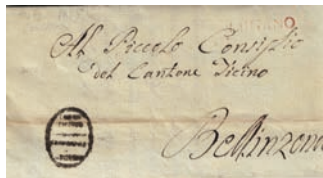 LUGANO.
Al Piccolo Consiglio
del Cantone Ticino
Bellinzona